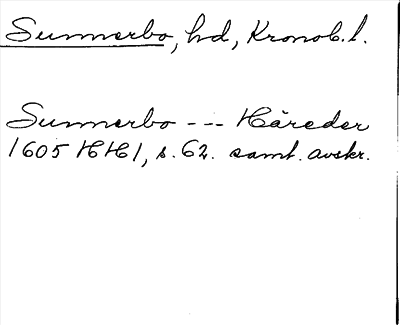 Sunnerbo, hd, Kronob.l.
Sunnerbo --- Häreder
1605 HH1, s. 62. samt. avskr.